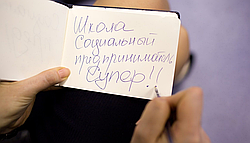 Школа
Социальный
предприниматель
Супер!!